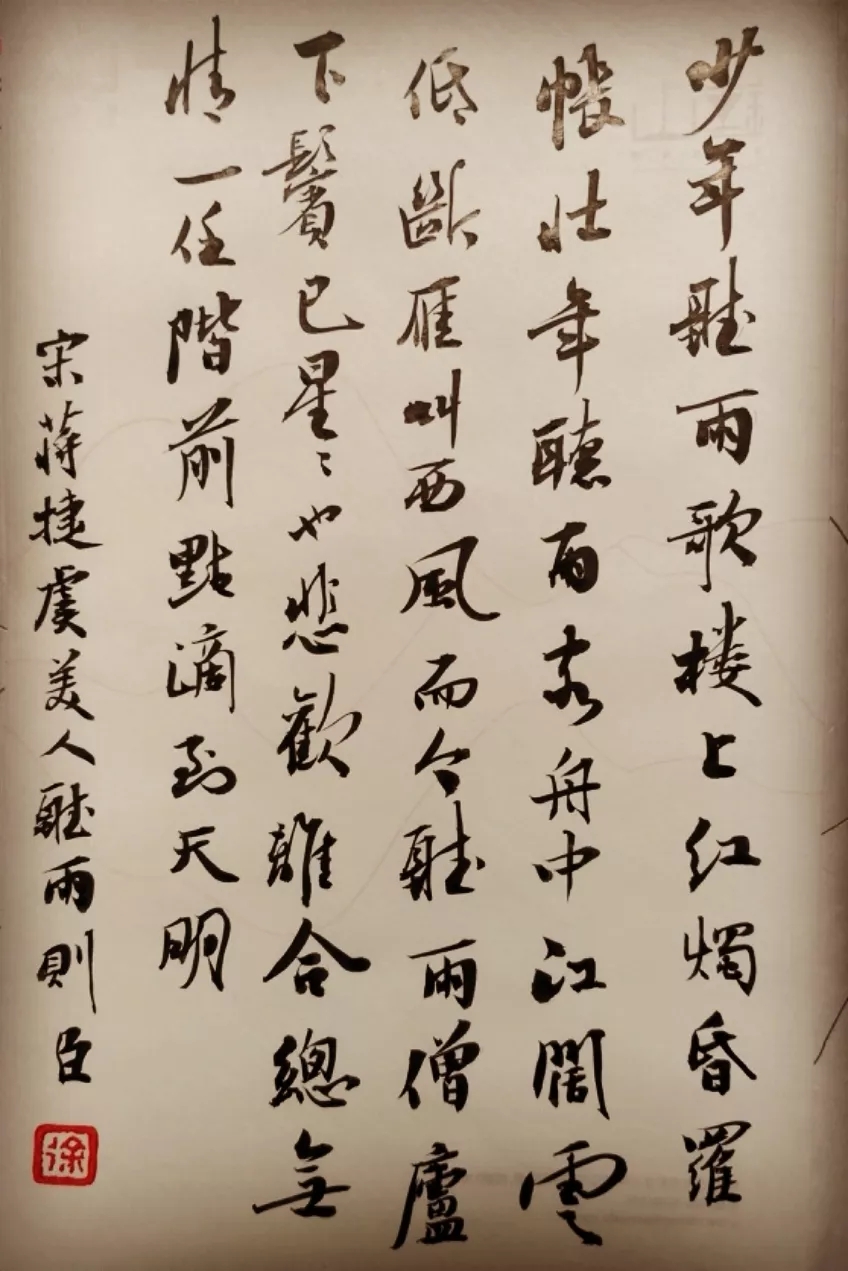 少年聽雨歌楼上红燭昏羅
帳壮年聽雨客舟中江闊雲
低斷雁叫西風而今聽雨僧廬
下鬢已星〻也悲歡離合總無
情一任階前點滴到天明
宋蒋捷虞美人聽雨則臣
徐